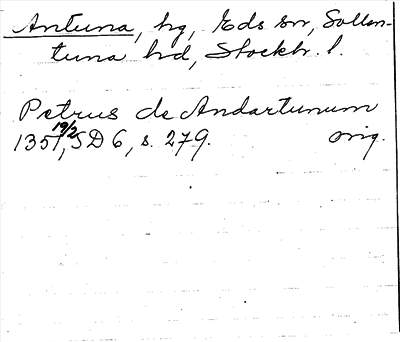 Antuna, hg, Eds sn, Sollen-
tuna hd, Stockh. l.
Petrus de Andartunum
1351 19/2, SD 6, s. 279. orig.